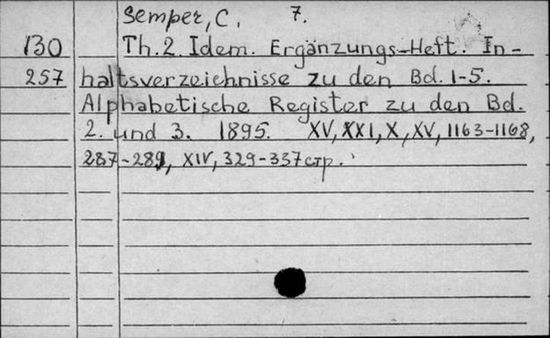 Semper, C. 7.
130 Th. 2. Idem. Ergänzungs-Heft. In-
257 haltsverzeichnisse zu den Bd. 1-5.
Alphabetische Register zu den Bd.
2. und 3. 1895. XV, XXI, X, XV, 1163-1168,
287-289, XIV, 329-337 стр.